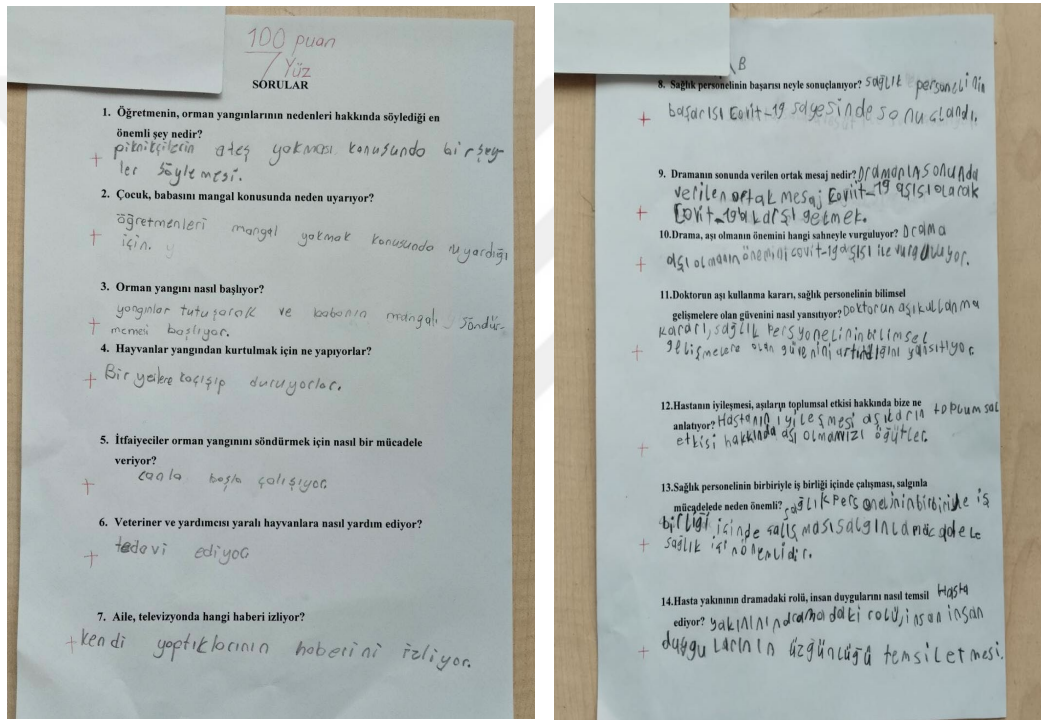 100 puan
Yüz
SORULAR
1. Öğretmenin, orman yangınlarının nedenleri hakkında söylediği en
önemli şey nedir?
+ piknikçilerin ateş yakması konusundo bir şey-
ler söylemesi.
2. Çocuk, babasını mangal konusunda neden uyarıyor?
öğretmenleri mangal yakmak konusunda uyardığı
+ için.
3. Orman yangını nasıl başlıyor?
yangınlar tutuşarak ve babanın mangalı söndür-
+ memesi başlıyor.
4. Hayvanlar yangından kurtulmak için ne yapıyorlar?
+ Bir yerlere kaçışıp duruyorlar.
5. İtfaiyeciler orman yangınını söndürmek için nasıl bir mücadele
veriyor?
+ canla başla çalışıyor.
6. Veteriner ve yardımcısı yaralı hayvanlara nasıl yardım ediyor?
+ tedavi ediyor
7. Aile, televizyonda hangi haberi izliyor?
+ kendi yaptıklarının haberini izliyor.
B
8. Sağlık personelinin başarısı neyle sonuçlanıyor? sağlık personelinin
+ başarısı Covit-19 sayesinde sonuclandı.
9. Dramanın sonunda verilen ortak mesaj nedir? Dramanın sonunda
verilen ortak mesaj Coviit-19 aşısı olarak
+ Covit-19'a karşı gelmek.
10.Drama, aşı olmanın önemini hangi sahneyle vurguluyor? Drama
+ aşı olmanın önemini covit-19 aşısı ile vurguluyor.
11.Doktorun aşı kullanma kararı, sağlık personelinin bilimsel
gelişmelere olan güvenini nasıl yansıtıyor? Doktorun aşı kullanma
kararı, sağlık persyonelinin bilimsel
+ gelişmelere olan güvenini artırdığını yansıtıyor.
12.Hastanın iyileşmesi, aşıların toplumsal etkisi hakkında bize ne
anlatıyor? Hastanın iyileşmesi aşıların toplumsal
+ etkisi hakkında aşı olmamızı öğütler.
13.Sağlık personelinin birbiriyle iş birliği içinde çalışması, salgınla
mücadelede neden önemli? sağlık personelinin biriyle iş
birliği içinde çalışması salgınla
+ sağlık için önemlidir.
14.Hasta yakınının dramadaki rolü, insan duygularını nasıl temsil Hasta
ediyor? yakınının dramadaki rolü, insan insan
+ duygularının üzgünlüğü temsil etmesi.